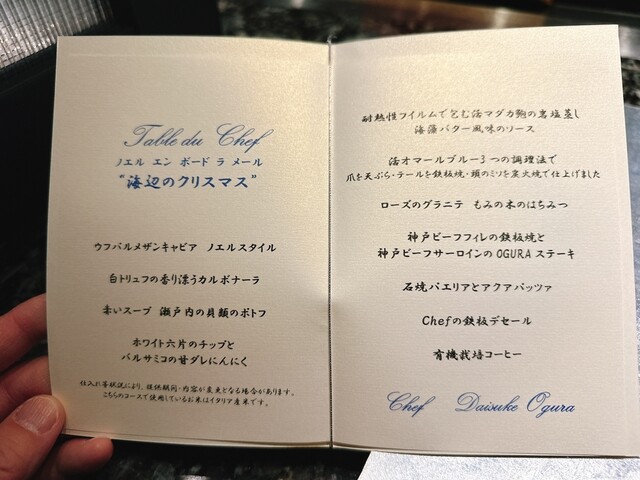 Table du Chef
ノエル エン ボード ラ メール
"海辺のクリスマス"
ウフパルメザンキャビア ノエルスタイル
白トリュフの香り漂うカルボナーラ
赤いスープ 瀬戸内の貝類のポトフ
ホワイト六片のチップと
バルサミコの甘ダレにんにく
仕入れ等状況により、提供期間・内容が変更となる場合があります。
こちらのコースで使用しているお米はイタリア産米です。
耐熱性フイルムで包む活マダカ鮑の岩塩蒸し
海藻バター風味のソース
活オマールブルー3つの調理法で
爪を天ぷら・テールを鉄板焼・頭のミソを炭火焼で仕上げました
ローズのグラニテ もみの木のはちみつ
神戸ビーフフィレの鉄板焼と
神戸ビーフサーロインのOGURAステーキ
石焼パエリアとアクアパッツァ
Chefの鉄板デセール
有機栽培コーヒー
Chef Daisuke Ogura